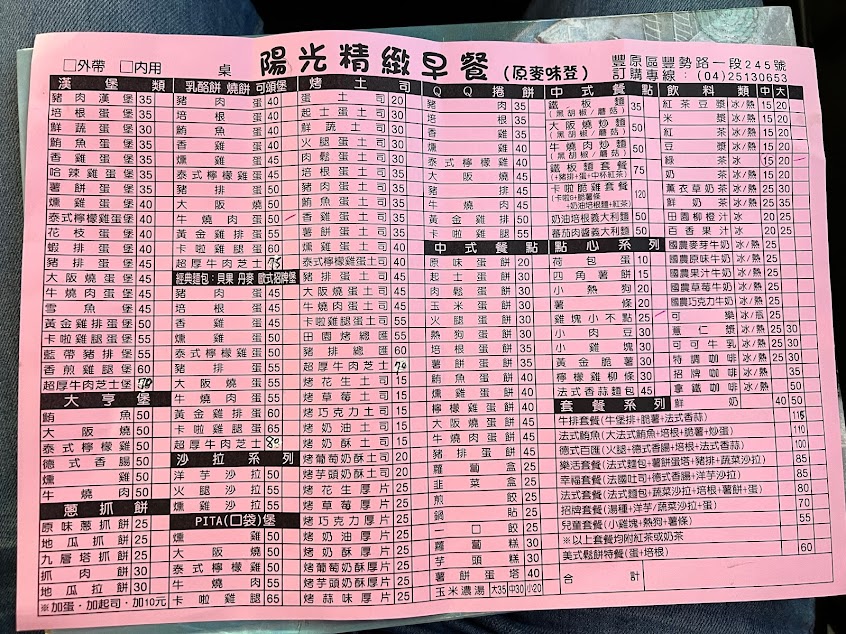 陽光精緻早餐(原麥味登)
□外帶 □內用 桌
豐原區豐勢路一段245號
訂購專線：(04)25130653
漢堡類
豬肉漢堡 35
培根蛋堡 40
鮮蔬蛋堡 40
鮪魚蛋堡 40
香雞蛋堡 40
哈辣雞蛋堡 40
薯餅蛋堡 40
燻雞蛋堡 40
泰式檸檬雞蛋堡 40
花枝蛋堡 40
蝦排蛋堡 40
豬排蛋堡 45
大阪燒蛋堡 45
牛燒肉蛋堡 45
雪魚堡 45
黃金雞排蛋堡 50
卡啦雞腿蛋堡 55
藍帶豬排堡 55
香煎雞腿堡 50
超厚牛肉芝士堡 70
大亨堡
鮪魚 50
大阪燒 50
泰式檸檬雞 50
德式香腸 50
燻雞 50
牛燒肉 50
蔥抓餅
原味蔥抓餅 25
地瓜抓餅 25
九層塔抓餅 25
抓肉餅 30
地瓜拉餅 30
※加蛋·加起司·加10元
乳酪餅 燒餅 可頌堡
豬肉蛋 40
培根蛋 40
鮪魚蛋 40
香雞蛋 40
燻雞蛋 45
泰式檸檬雞蛋 45
豬排蛋 50
大阪燒 50
牛燒肉蛋 50
黃金雞排蛋 55
卡啦雞腿蛋 60
超厚牛肉芝士 75
經典麵包：貝果 丹麥 歐式招牌堡
豬肉蛋 45
培根蛋 45
香雞蛋 45
燻雞蛋 50
泰式檸檬雞蛋 50
豬排蛋 55
大阪燒蛋 55
牛燒肉蛋 55
黃金雞排蛋 60
卡啦雞腿蛋 65
超厚牛肉芝士 80
沙拉系列
洋芋沙拉 50
火腿沙拉 55
燻雞沙拉 55
PITA(口袋)堡
燻雞 50
大阪燒 50
泰式檸檬雞 50
牛燒肉 55
卡啦雞腿 65
烤土司
蛋土司 20
起士蛋土司 30
鮮蔬土司 30
火腿蛋土司 30
肉鬆蛋土司 30
培根蛋土司 35
豬肉蛋土司 35
鮪魚蛋土司 35
香雞蛋土司 35
薯餅蛋土司 35
燻雞蛋土司 40
泰式檸檬雞蛋土司 40
豬排蛋土司 45
大阪燒蛋土司 45
牛燒肉蛋土司 45
卡啦雞腿蛋土司 55
田園烤總匯 55
豬排總匯 60
超厚牛肉芝士 70
烤花生土司 15
烤草莓土司 15
烤巧克力土司 15
烤奶油土司 15
烤奶酥土司 15
烤葡萄奶酥土司 20
烤芋頭奶酥土司 20
烤花生厚片 25
烤草莓厚片 25
烤巧克力厚片 25
烤奶油厚片 25
烤奶酥厚片 25
烤葡萄奶酥厚片 25
烤芋頭奶酥厚片 25
烤蒜味厚片 25
QQ捲餅
豬肉 35
培根 35
香雞 35
燻雞 40
泰式檸檬雞 40
大阪燒 45
豬排 45
牛燒肉 45
黃金雞排 50
卡啦雞腿 55
中式餐點
原味蛋餅 20
起士蛋餅 30
肉鬆蛋餅 30
玉米蛋餅 30
火腿蛋餅 30
熱狗蛋餅 30
培根蛋餅 35
薯餅蛋餅 35
鮪魚蛋餅 40
燻雞蛋餅 40
檸檬雞蛋餅 40
大阪燒蛋餅 45
牛燒肉蛋餅 45
豬排蛋餅 45
蘿蔔盒 25
韭菜盒 25
煎餃 25
鍋貼 25
一口餃 25
蘿蔔糕 30
芋頭糕 30
薯餅蛋塔 40
玉米濃湯 大35 中30 小20
中式餐點
鐵板麵(黑胡椒/蘑菇) 35
大阪燒炒麵(黑胡椒/蘑菇) 50
牛燒肉炒麵(黑胡椒/蘑菇) 50
鐵板麵套餐(+豬排+蛋+中杯紅茶) 75
卡啦脆雞套餐(卡啦+脆薯條+奶油培根麵+紅茶) 120
奶油培根義大利麵 50
蕃茄肉醬義大利麵 50
點心系列
荷包蛋 10
四角薯餅 15
小熱狗 20
薯條 20
雞塊小不點 25
小肉豆 30
小雞塊 30
黃金脆薯 30
檸檬雞柳條 30
法式香蒜麵包 45
飲料類 中 大
紅茶豆漿 冰/熱 15 20
米漿 冰/熱 15 20
紅茶 冰/熱 15 20
豆漿 冰/熱 15 20
綠茶 冰 15 20
奶茶 冰/熱 15 20
薰衣草奶茶 冰/熱 20 25
鮮奶茶 冰/熱 20 25
田園柳橙汁 冰 20 25
百香果汁 冰 20 25
國農麥芽牛奶 冰/熱 25
國農原味牛奶 冰/熱 25
國農果汁牛奶 冰/熱 25
國農草莓牛奶 冰/熱 25
國農巧克力牛奶 冰/熱 25
可樂 冰/瓶 25
薏仁漿 冰/熱 25 30
可可牛乳 冰/熱 25 30
特調咖啡 冰/熱 25 30
招牌咖啡 冰/熱 35
拿鐵咖啡 冰/熱 50
鮮奶 40 50
套餐系列
牛排套餐(牛堡排+脆薯+法式香蒜) 115
法式鮪魚(大法式鮪魚+培根+脆薯+炒蛋) 110
德式百匯(火腿+德式香腸+培根+法式香蒜) 100
樂活套餐(法式麵包+薯餅蛋塔+豬排+蔬菜沙拉) 85
幸福套餐(法國吐司+德式香腸+洋芋沙拉) 85
法式套餐(法式麵包+蔬菜沙拉+培根+薯餅+蛋) 80
招牌套餐(湯種+洋芋/蔬菜沙拉+蛋) 70
兒童套餐(小雞塊+熱狗+薯條) 55
※以上套餐均附紅茶或奶茶
美式鬆餅特餐(蛋+培根) 60
合計